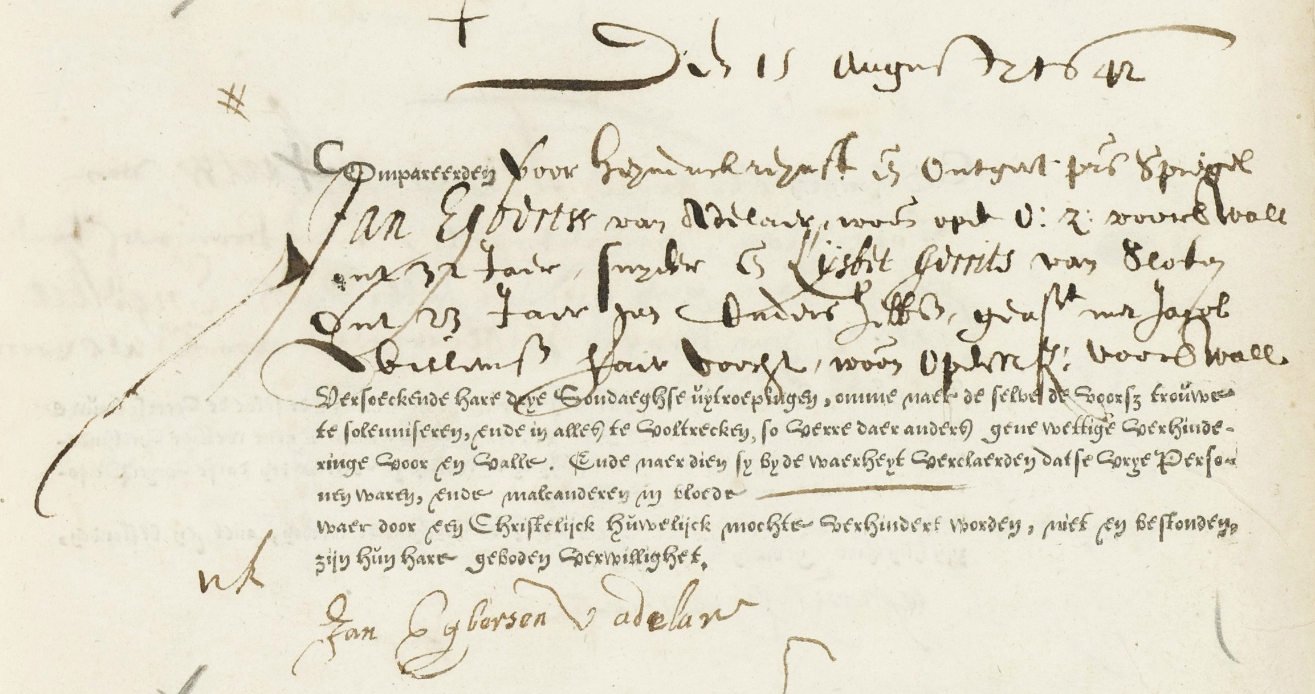 Den 15 August 1642
Compareerden voor Hendrick Reynst en Outgert prs Spiegel
Jan Egbertss van Adelaer, woon: opde O: Z: voorb Wall
out 32 Jaer, snyder en Lijsbet Gerrits van Sloten
Out 23 Jaer Jan geast met Jacob
Willemss vocht, woon: op de voorb Wall
Versoeckende hare drye Sondaeghse uytroepingen, omme naer de selve de voorsz trouwe
te solenniseren, ende in alles te voltrecken, so verre daer anders gene wettige verhinde-
ringe voor en valle. Ende naer dien sy by de waerheyt verclaerden dat se vrye Perso-
nen waren, ende malcanderen in bloede
waer door een Christelijck huwelijck mochte verhindert worden, niet en bestonden,
zijn hun hare geboden verwillighet.
Jan Egbersen V adelaer